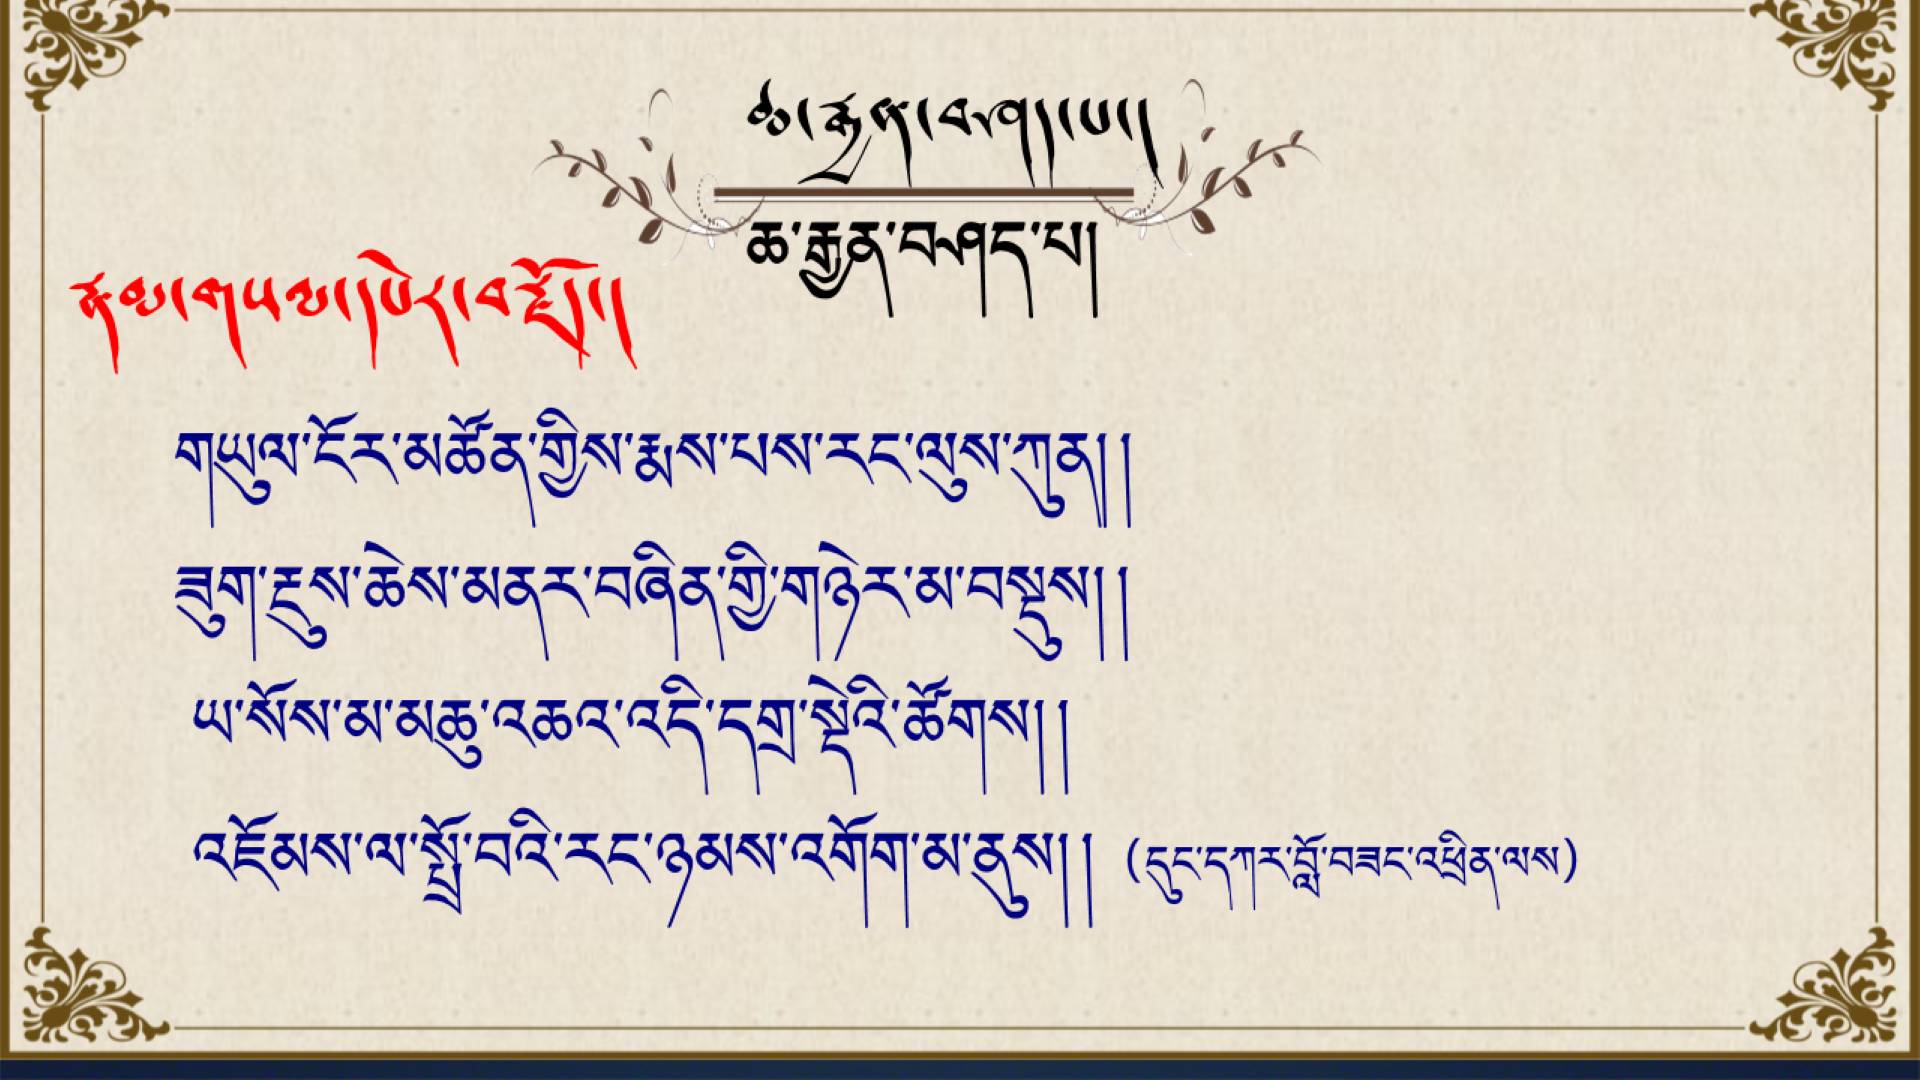 ཆ་རྒྱན་བཤད་པ།
ཆ་རྒྱན་བཤད་པ།
དཔེར་བརྗོད།
གཡུལ་ངོར་མཚོན་གྱིས་རྨས་པས་རང་ལུས་ཀུན།།
ཟུག་རྔུས་ཆེས་མནར་བཞིན་གྱི་གཉེར་མ་བསྡུས།།
ཡ་སོས་མ་མཆུ་འཆའ་འདི་དགྲ་སྡེའི་ཚོགས།།
འཇོམས་ལ་སྤྲོ་བའི་རང་ཉམས་འགོག་མ་ནུས།། (དུང་དཀར་བློ་བཟང་འཕྲིན་ལས)